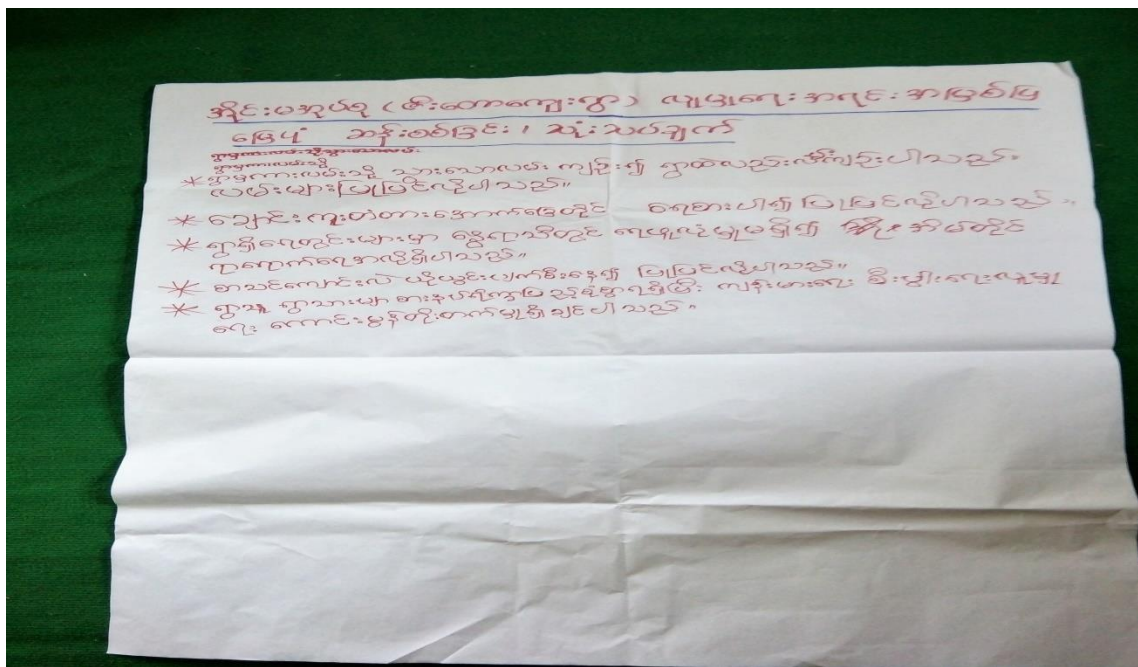 အိုင်းမအုပ်စု (ဇီးတောကျေးရွာ) လူမှုရေး အရင်း အမြစ်ပြ
မြေပုံ ဆန်းစစ်ခြင်း / သုံးသပ်ချက်
* ရွာမှကားလမ်းသို့ သွားသောလမ်း ကျဉ်း၍ ရွာထဲလည်းလမ်းကျဉ်းပါသည်။
လမ်းများပြုပြင်လိုပါသည်။
* ချောင်းကူးတံတားအောက်ခြေတိုင် ရေစားပါ၍ ပြုပြင်လိုပါသည်။
* ရွာရှိရေတွင်းများမှာ နွေရာသီတွင် ရေဖူလုံမှုမရှိ၍ အိမ်တိုင်
ရာရောက်ရေအလိုရှိပါသည်။
* စာသင်ကျောင်းလဲ ယိုယွင်းပျက်စီးနေ၍ ပြုပြင်လိုပါသည်။
* ရွာသူ ရွာသားများ စားနပ်ရိက္ခာပြည့်စုံစွာရရှိပြီး ကျန်းမာရေး စီးပွါးရေးလူမှု
ရေး ကောင်းမွန်တိုးတက်မှုရှိချင်ပါသည်။